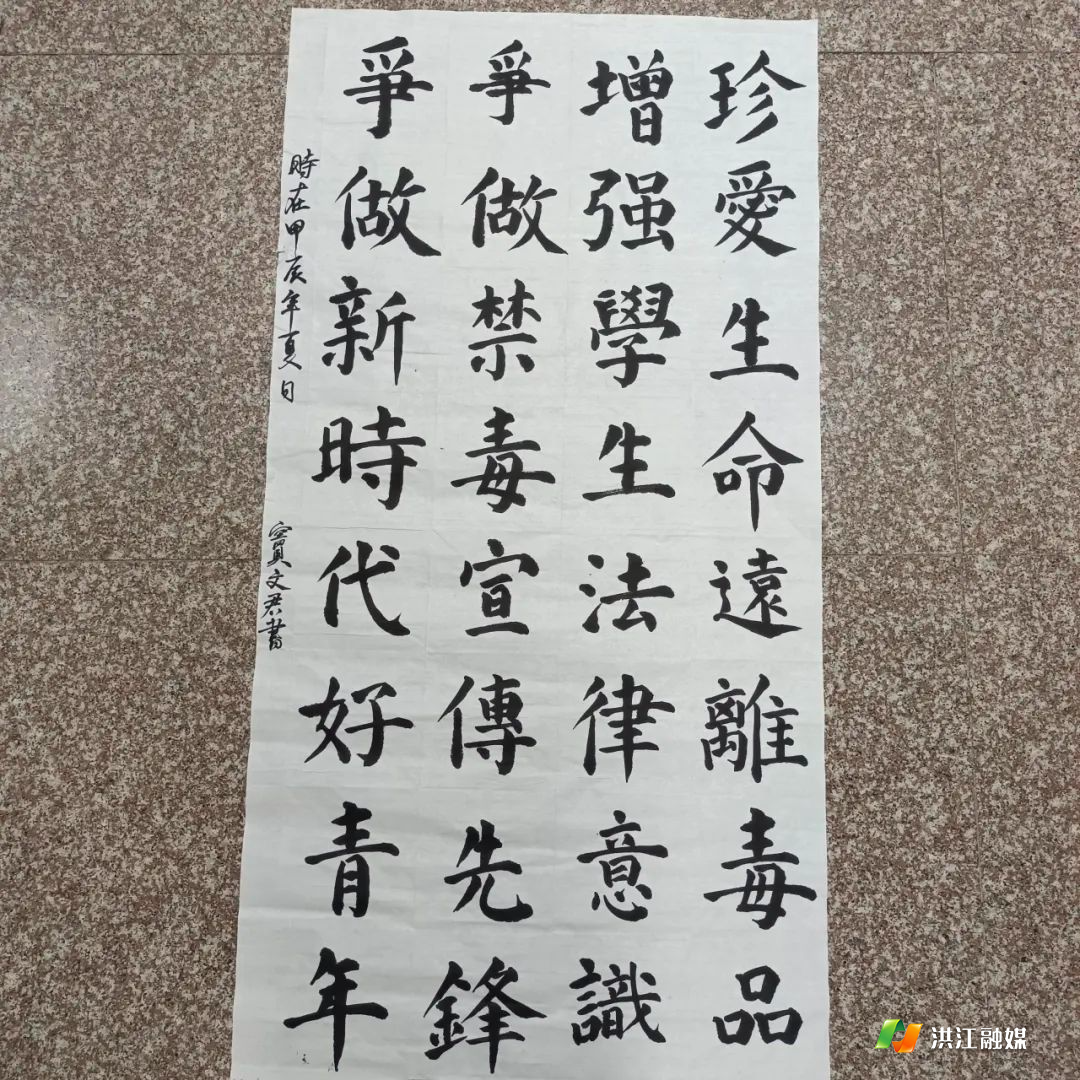 珍愛生命遠離毒品
增强學生法律意識
爭做禁毒宣傳先鋒
爭做新時代好青年
時在甲辰年夏日
竇文君書
洪江融媒